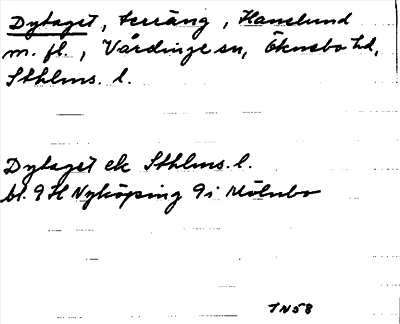 Dytaget, terräng, Hanslund
m. fl., Vårdinge sn, Öknebo hd,
Sthlms. l.
Dytaget ek Sthlms. l.
bl. 9H Nyköping 9i Mölnbo
TN58